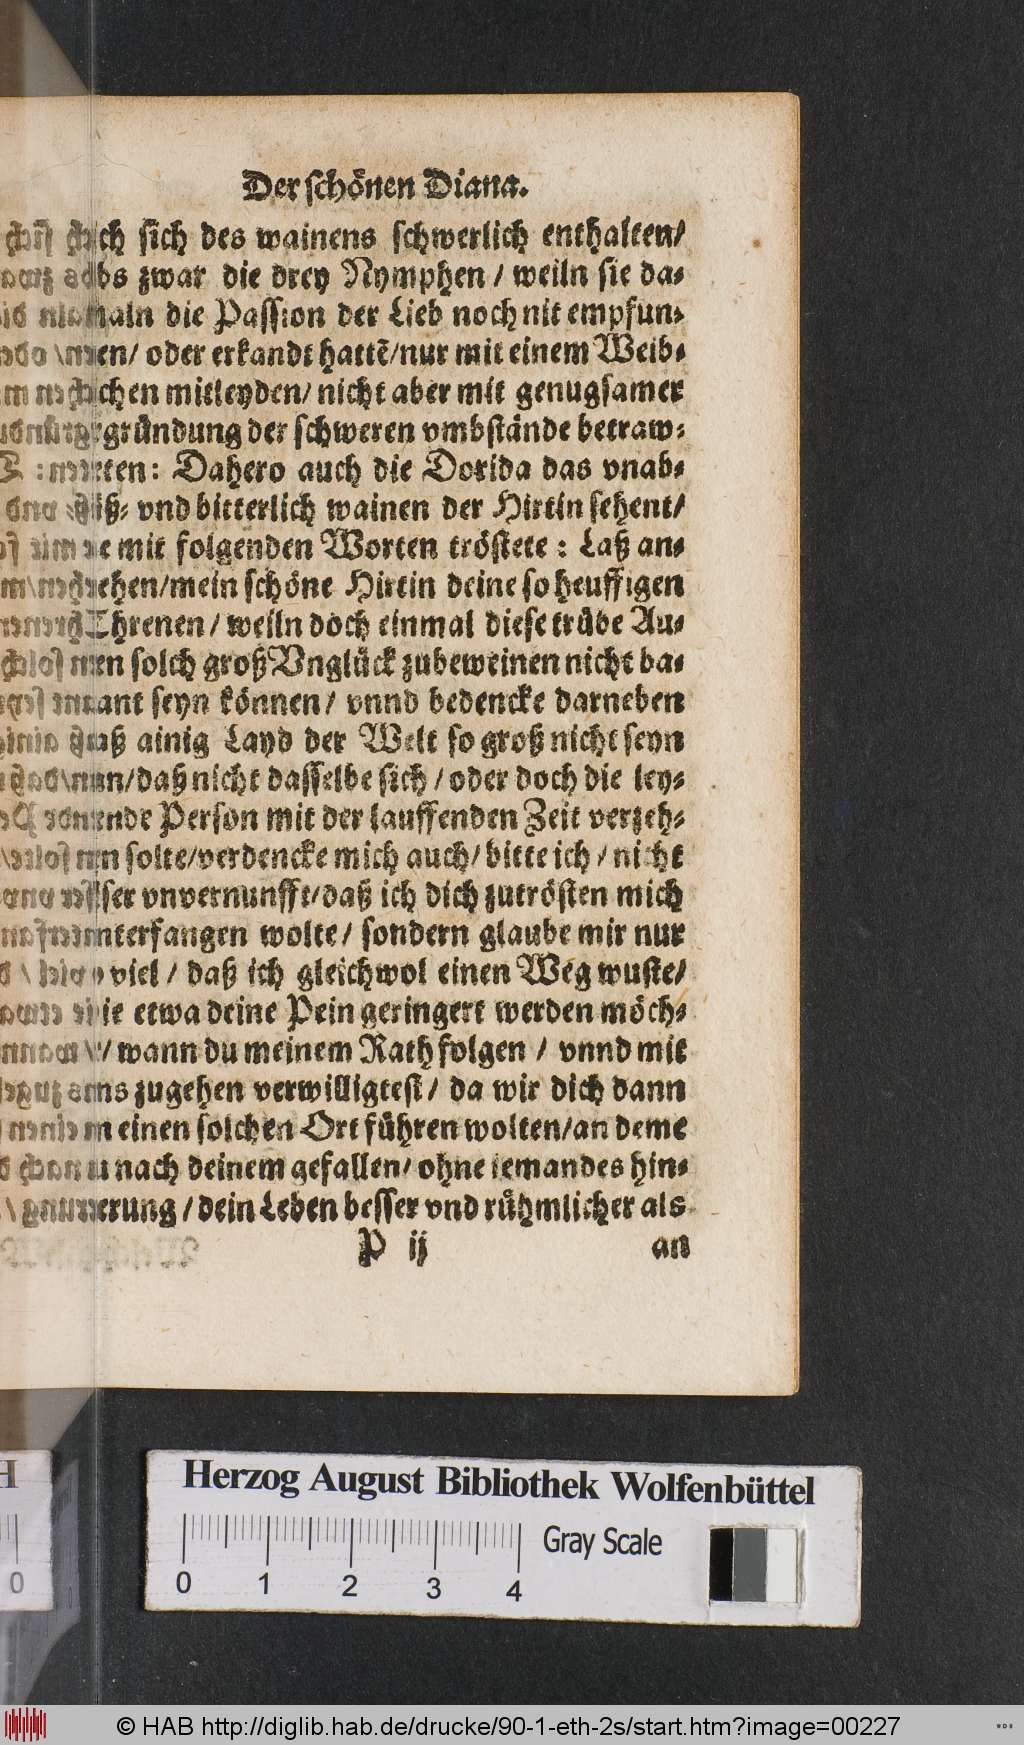 Der schönen Diana.
sich des wainens schwerlich enthalten/
zwar die drey Nymphen / weiln sie da⸗
die Passion der Lieb noch nit empfun⸗
oder erkandt hattē/nur mit einem Weib⸗
chen mitleyden/ nicht aber mit genugsamer
gründung der schweren vmbstände betraw⸗
ten: Dahero auch die Dorida das vnab⸗
vnd bitterlich wainen der Hirtin sehent/
mit folgenden Worten tröstete: Laß an⸗
ehen/mein schöne Hirtin deine so heuffigen
Threnen/ weiln doch einmal diese trübe Au⸗
solch groß Vnglück zubeweinen nicht ba⸗
ant seyn können/ vnnd bedencke darneben
ainig Layd der Welt so groß nicht seyn
daß nicht dasselbe sich / oder doch die ley⸗
nde Person mit der lauffenden Zeit verzeh⸗
solte/verdencke mich auch/ bitte ich / nicht
ser vnvernunfft/daß ich dich zutrösten mich
nterfangen wolte/ sondern glaube mir nur
viel / daß ich gleichwol einen Weg wuste/
ie etwa deine Pein geringert werden möch⸗
wann du meinem Rath folgen / vnnd mit
ns zugehen verwilligtest/ da wir dich dann
einen solchen Ort führen wolten/an deme
nach deinem gefallen/ ohne iemandes hin⸗
erung / dein Leben besser vnd rühmlicher als
P ij an
H
0
Herzog August Bibliothek Wolfenbüttel
Gray Scale
0 1 2 3 4
© HAB http://diglib.hab.de/drucke/90-1-eth-2s/start.htm?image=00227